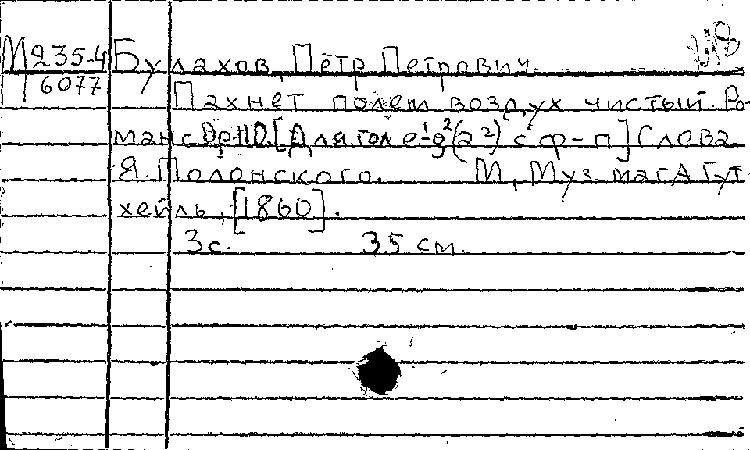 М 235-4 Булахов, Пётр Петрович.
П 6077
Пахнет полем воздух чистый. Ро-
манс Ор. 110. [Для гол. е¹-g²(a²) с ф-п] Слова
Я. Полонского. М., Муз. маг. А. Гут-
хейль, [1860].
3 с. 35 см.